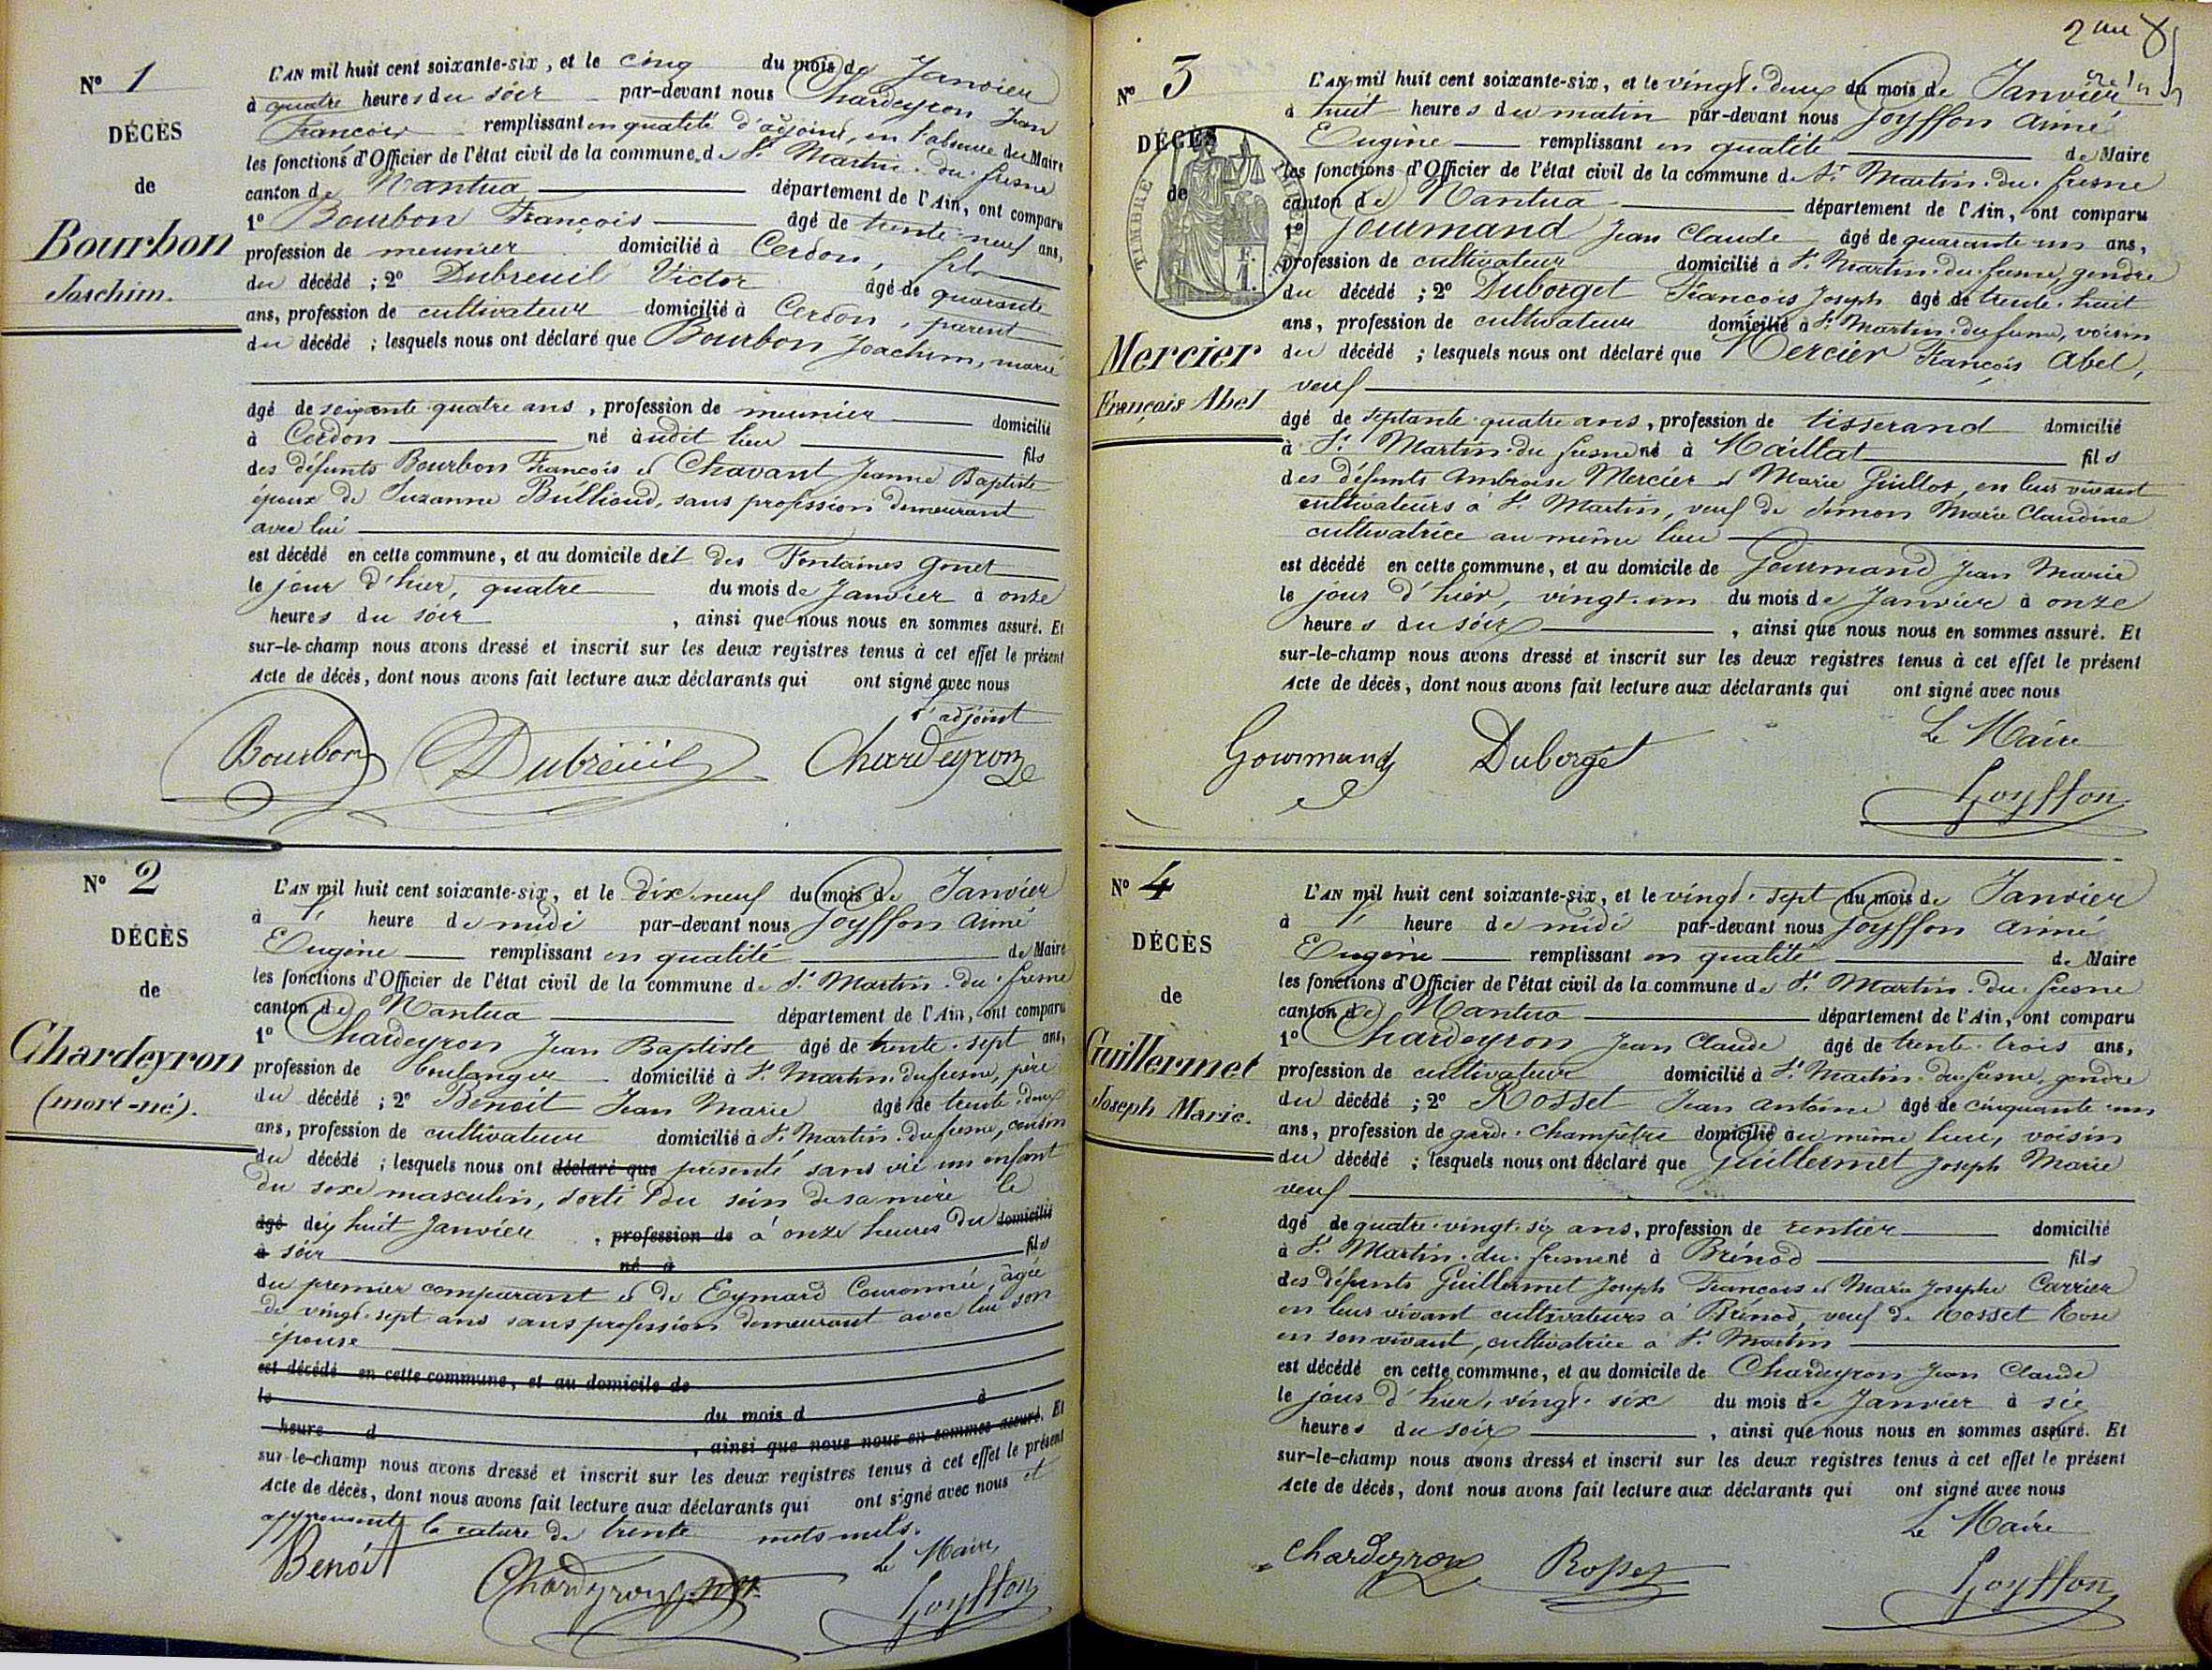 Nº 1
DÉCÈS
de
Bourbon
Joachim.
L'AN mil huit cent soixante-six, et le cinq du mois de Janvier
à quatre heures du soir par-devant nous Chardeyron Jean
François remplissant en qualité d'adjoint, en l'absence du Maire
les fonctions d'Officier de l'état civil de la commune de St Martin-du-fresne
canton de Nantua département de l'Ain, ont comparu
1º Bourbon François âgé de trente-neuf ans,
profession de meunier domicilié à Cerdon, fils
du décédé ; 2º Dubreuil Victor âgé de quarante
ans, profession de cultivateur domicilié à Cerdon, parent
du décédé ; lesquels nous ont déclaré que Bourbon Joachim, marié
âgé de soixante quatre ans, profession de meunier domicilié
à Cerdon né audit lieu fils
des défunts Bourbon François et Chavant Jeanne Baptiste
époux de Suzanne Bullioud, sans profession demeurant
avec lui
est décédé en cette commune, et au domicile det des Fontaines Gonet
le jour d'hier, quatre du mois de Janvier à onze
heures du soir, ainsi que nous nous en sommes assuré. Et
sur-le-champ nous avons dressé et inscrit sur les deux registres tenus à cet effet le présent
Acte de décès, dont nous avons fait lecture aux déclarants qui ont signé avec nous
l'adjoint
Bourbon Dubreuil Chardeyron
Nº 2
DÉCÈS
de
Chardeyron
(mort-né).
L'AN mil huit cent soixante-six, et le dix-neuf du mois de Janvier
à 1' heure de midi par-devant nous Goyffon Aimé
Eugène remplissant en qualité de Maire
les fonctions d'Officier de l'état civil de la commune de St Martin-du-fresne
canton de Nantua département de l'Ain, ont comparu
1º Chardeyron Jean Baptiste âgé de trente-sept ans,
profession de boulanger domicilié à St Martin-du-fresne, père
du décédé ; 2º Benoit Jean Marie âgé de trente-deux
ans, profession de cultivateur domicilié à St Martin-du-fresne, cousin
du décédé ; lesquels nous ont déclaré que présenté sans vie un enfant
du sexe masculin, sorti du sein de sa mère le
âgé dix huit Janvier, profession de à onze heures du domicilié
à soir né à fils
du premier comparant et de Eymard Couronnée, âgée
de vingt-sept ans sans profession demeurant avec lui son
épouse
est décédé en cette commune, et au domicile de
le du mois d à
heure d, ainsi que nous nous en sommes assuré. Et
sur-le-champ nous avons dressé et inscrit sur les deux registres tenus à cet effet le présent
Acte de décès, dont nous avons fait lecture aux déclarants qui ont signé avec nous et
approuvent la rature de trente mots nuls.
Le Maire,
Benoit Chardeyron Goyffon
Nº 3
DÉCÈS
de
TIMBRE IMPERIAL
Mercier
François Abel
L'AN mil huit cent soixante-six, et le vingt-deux du mois de Janvier
à huit heures du matin par-devant nous Goyffon Aimé
Eugène remplissant en qualité de Maire
les fonctions d'Officier de l'état civil de la commune de St Martin-du-fresne
canton de Nantua département de l'Ain, ont comparu
1º Gourmand Jean Claude âgé de quarante un ans,
profession de cultivateur domicilié à St Martin-du-fresne, gendre
du décédé ; 2º Duborget François Joseph âgé de trente-huit
ans, profession de cultivateur domicilié à St Martin-du-fresne, voisin
du décédé ; lesquels nous ont déclaré que Mercier François Abel,
veuf
âgé de septante-quatre ans, profession de tisserand domicilié
à St Martin-du-fresne né à Maillat fils
des défunts Ambroise Mercier et Marie Guillot, en leur vivant
cultivateurs à St Martin, veuf de Simon Marie Claudine
cultivatrice au même lieu
est décédé en cette commune, et au domicile de Gourmand Jean Marie
le jour d'hier, vingt-un du mois de Janvier à onze
heures du soir, ainsi que nous nous en sommes assuré. Et
sur-le-champ nous avons dressé et inscrit sur les deux registres tenus à cet effet le présent
Acte de décès, dont nous avons fait lecture aux déclarants qui ont signé avec nous
Le Maire
Gourmand Duborget
Goyffon
Nº 4
DÉCÈS
de
Guillermet
Joseph Marie.
L'AN mil huit cent soixante-six, et le vingt-sept du mois de Janvier
à 1' heure de midi par-devant nous Goyffon Aimé
Eugène remplissant en qualité de Maire
les fonctions d'Officier de l'état civil de la commune de St Martin-du-fresne
canton de Nantua département de l'Ain, ont comparu
1º Chardeyron Jean Claude âgé de trente-trois ans,
profession de cultivateur domicilié à St Martin-du-fresne, gendre
du décédé ; 2º Rosset Jean Antoine âgé de cinquante-un
ans, profession de garde-champêtre domicilié au même lieu, voisin
du décédé ; lesquels nous ont déclaré que Guillermet Joseph Marie
veuf
âgé de quatre-vingt-six ans, profession de rentier domicilié
à St Martin-du-fresne né à Brénod fils
des défunts Guillermet Joseph François et Marie Josephe Carrier
en leur vivant cultivateurs à Brénod, veuf de Rosset Rose
en son vivant, cultivatrice à St Martin
est décédé en cette commune, et au domicile de Chardeyron Jean Claude
le jour d'hier, vingt-six du mois de Janvier à six
heures du soir, ainsi que nous nous en sommes assuré. Et
sur-le-champ nous avons dressé et inscrit sur les deux registres tenus à cet effet le présent
Acte de décès, dont nous avons fait lecture aux déclarants qui ont signé avec nous
Le Maire
Chardeyron Rosset
Goyffon